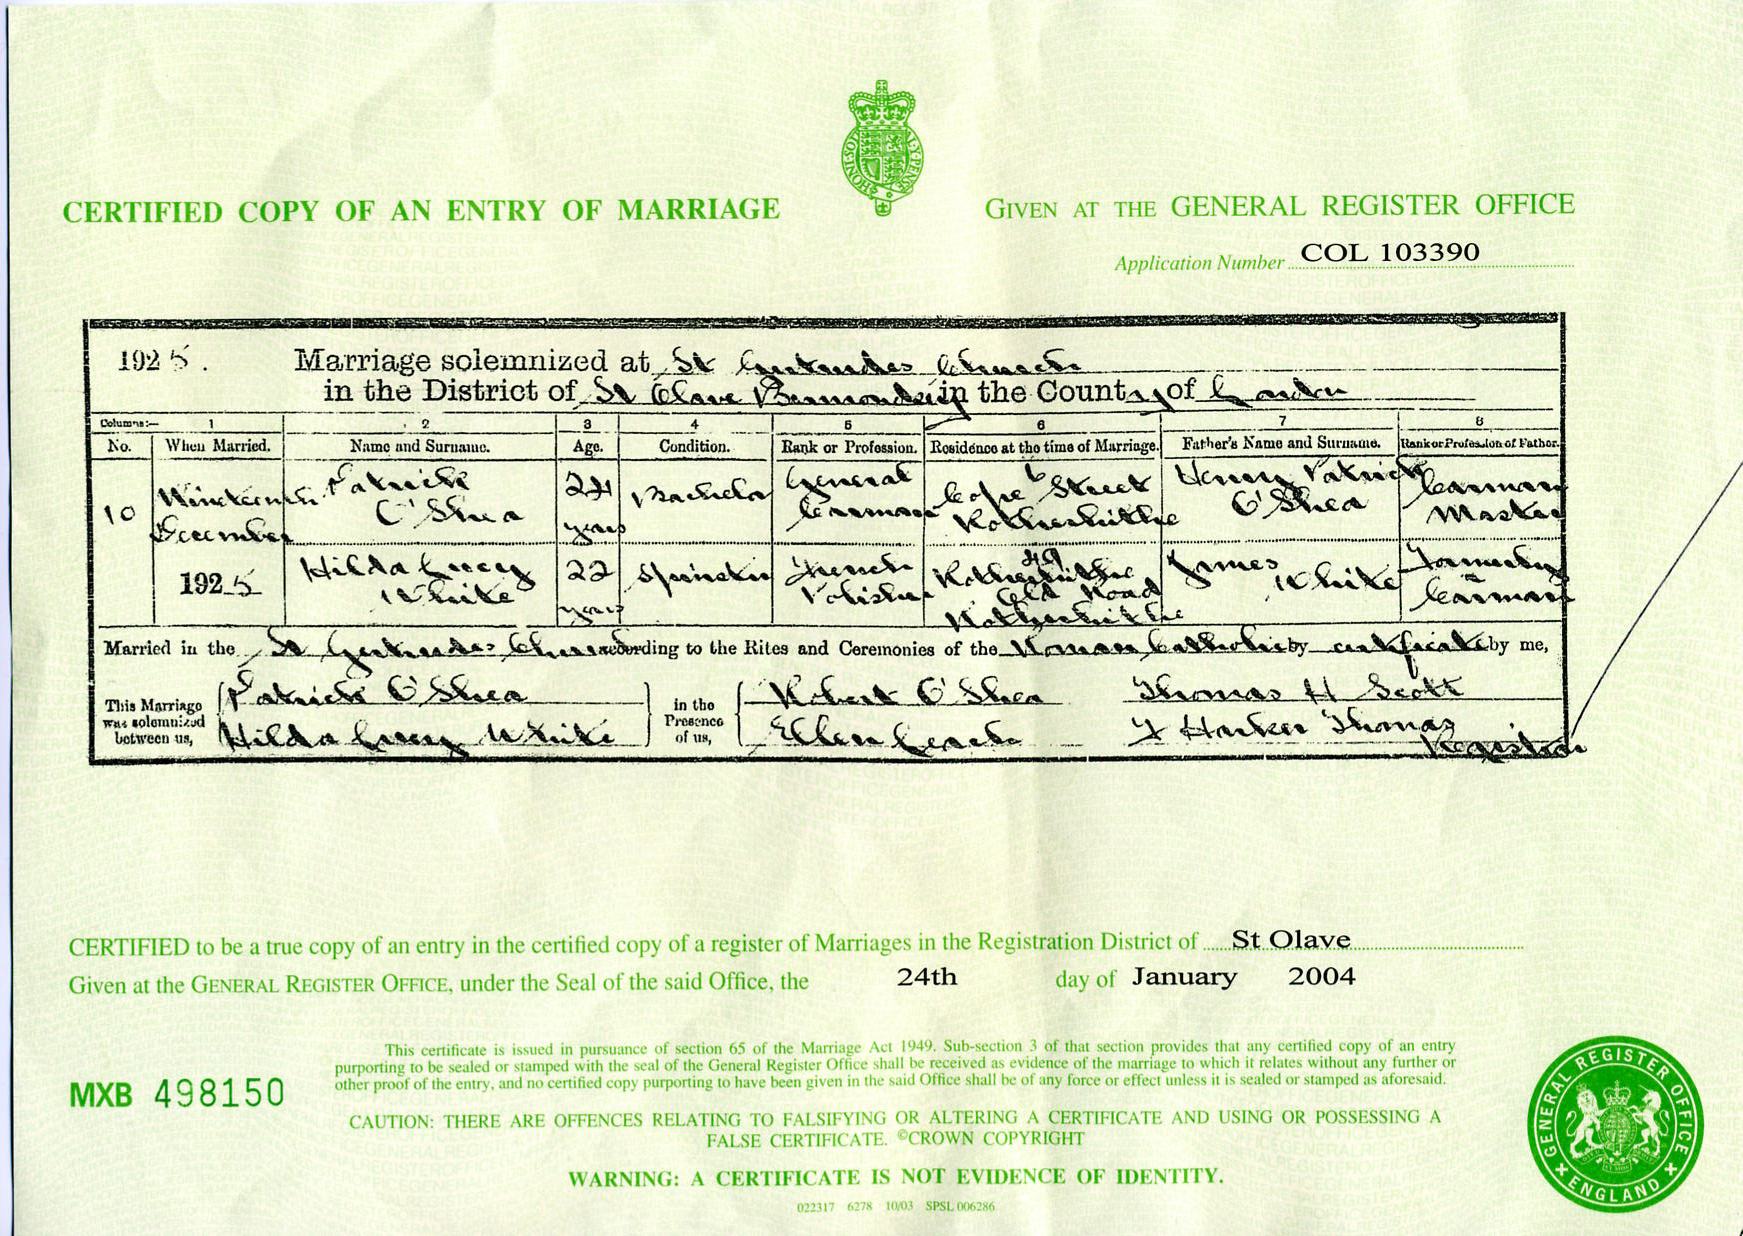 CERTIFIED COPY OF AN ENTRY OF MARRIAGE
GIVEN AT THE GENERAL REGISTER OFFICE
Application Number COL 103390
1925. Marriage solemnized at St Gertrudes Church
in the District of St Olave Bermondsey in the County of London
Columns:— 1 2 3 4 5 6 7 8
No. When Married. Name and Surname. Age. Condition. Rank or Profession. Residence at the time of Marriage. Father's Name and Surname. Rank or Profession of Father.
10 Nineteenth December 1925
Patrick O'Shea 24 years Bachelor General Carman 6 Cope Street Rotherhithe Henry Patrick O'Shea Carman Master
Hilda Lucy White 22 years Spinster French Polisher 49 Rotherhithe Old Road Rotherhithe James White Formerly a Carman
Married in the St Gertrudes Church according to the Rites and Ceremonies of the Roman Catholics by certificate by me,
This Marriage was solemnized between us,
Patrick O'Shea
Hilda Lucy White
in the Presence of us,
Robert O'Shea
Ellen Leach
Thomas H Scott
Harker Thomas
Registrar
CERTIFIED to be a true copy of an entry in the certified copy of a register of Marriages in the Registration District of St Olave
Given at the GENERAL REGISTER OFFICE, under the Seal of the said Office, the 24th day of January 2004
This certificate is issued in pursuance of section 65 of the Marriage Act 1949. Sub-section 3 of that section provides that any certified copy of an entry
purporting to be sealed or stamped with the seal of the General Register Office shall be received as evidence of the marriage to which it relates without any further or
other proof of the entry, and no certified copy purporting to have been given in the said Office shall be of any force or effect unless it is sealed or stamped as aforesaid.
MXB 498150
CAUTION: THERE ARE OFFENCES RELATING TO FALSIFYING OR ALTERING A CERTIFICATE AND USING OR POSSESSING A
FALSE CERTIFICATE. ©CROWN COPYRIGHT
WARNING: A CERTIFICATE IS NOT EVIDENCE OF IDENTITY.
022317 6278 10/03 SPSL 006286
GENERAL REGISTER OFFICE
ENGLAND